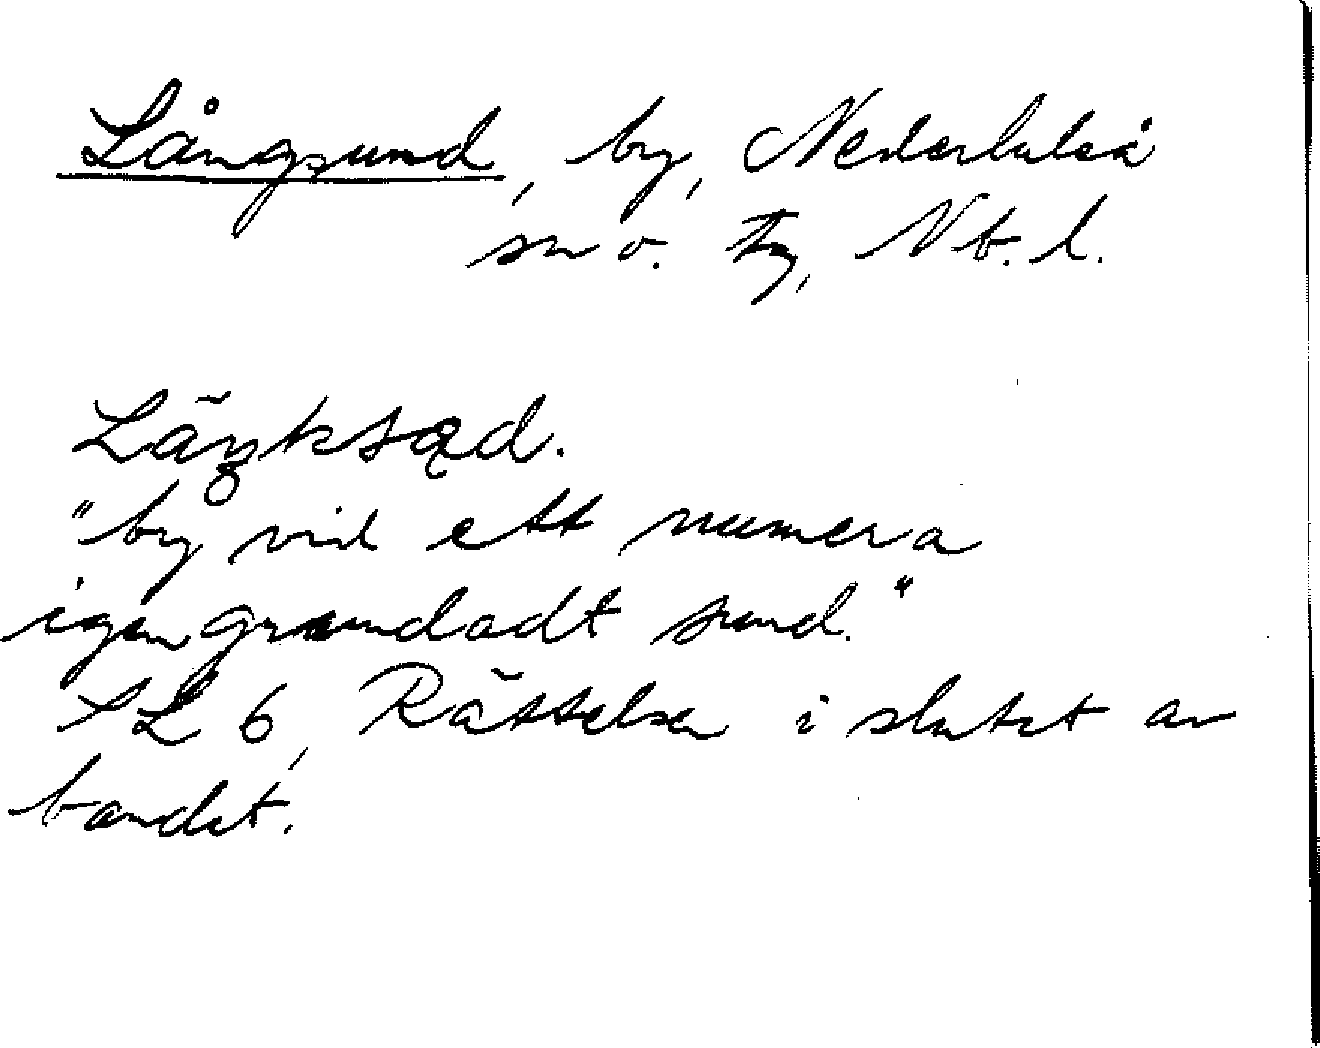 Långsund, by, Nederluleå
sn o. tg, Nb. l.
"by vid ett numera
igengrundadt sund."
SL 6, Rättelser i slutet av
bandet.